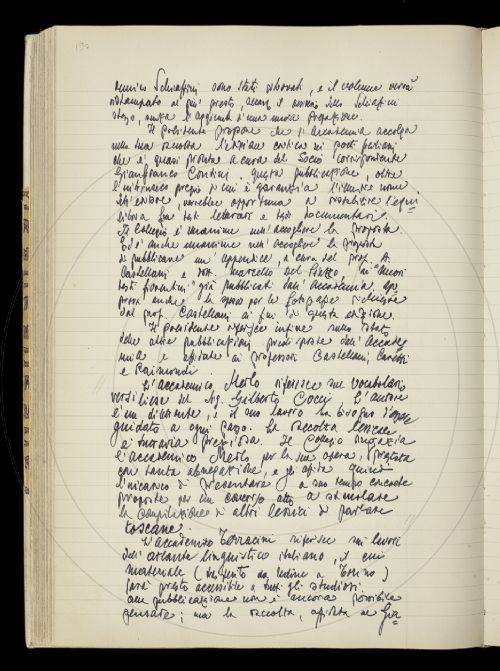 130
amico Schiaffini sono stati ritrovati, e il volume verrà
ristampato al più presto, senza il
stesso, senza l'aggiunta d'una nuova prefazione.
Il Presidente propone che l'Accademia accolga
nella sua raccolta l'edizione critica dei poeti
che è quasi pronta a cura del Socio corrispondente
Gianfranco Contini. Questa pubblicazione, oltre
l'intrinseco pregio di cui è garanzia l'illustre nome
dell'editore, sarebbe opportuna a ristabilire l'equi=
librio fra testi letterari e testi documentari.
Il Collegio è unanime nell'accogliere la proposta
Ed è anche unanime nell'accogliere la proposta
di pubblicare un'appendice, a cura del prof. A.
Castellani e dott. Marcello Del Piazzo, ai "Nuovi
testi fiorentini" già pubblicati dall'Accademia. Ap=
prova anche la spesa per le fotografie richieste
dal prof. Castellani ai fini di questa edizione.
Il Presidente riferisce infine sullo stato
delle altre pubblicazioni predisposte dall'Accade=
mia e affidate ai professori Castellani,
e Raimondi.
L'accademico Merlo riferisce sul vocabolario
versiliese del Sig. Gilberto Cocci. L'autore
è un dilettante, e il suo lavoro ha bisogno d'essere
guidato a ogni passo. La raccolta lessicale
è tuttavia preziosa. Il Collegio ringrazia
l'accademico Merlo per la sua opera, prestata
con tanta abnegazione, e gli affida quindi
l'incarico di presentare a suo tempo concrete
proposte per un concorso atto a stimolare
la compilazione di altri lessici di parlate
toscane.
L'accademico Terracini riferisce sui lavori
dell'atlante linguistico italiano, il cui
materiale (trasferito da Udine a Torino)
sarà presto accessibile a tutti gli studiosi.
Una pubblicazione non è ancora possibile
pensare; ma la raccolta, affidata al Gra=